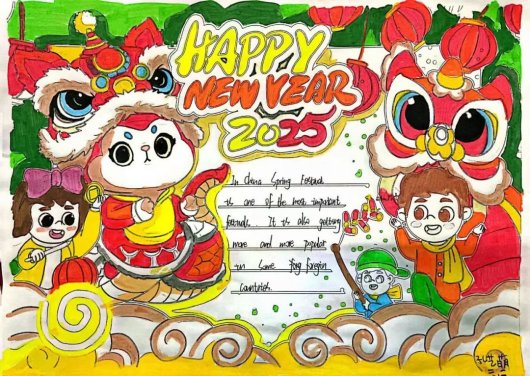 HAPPY
NEW YEAR
2025
In China Spring Festival
is one of the most important
festivals. It is also getting
more and more popular
in some foreign
countries.